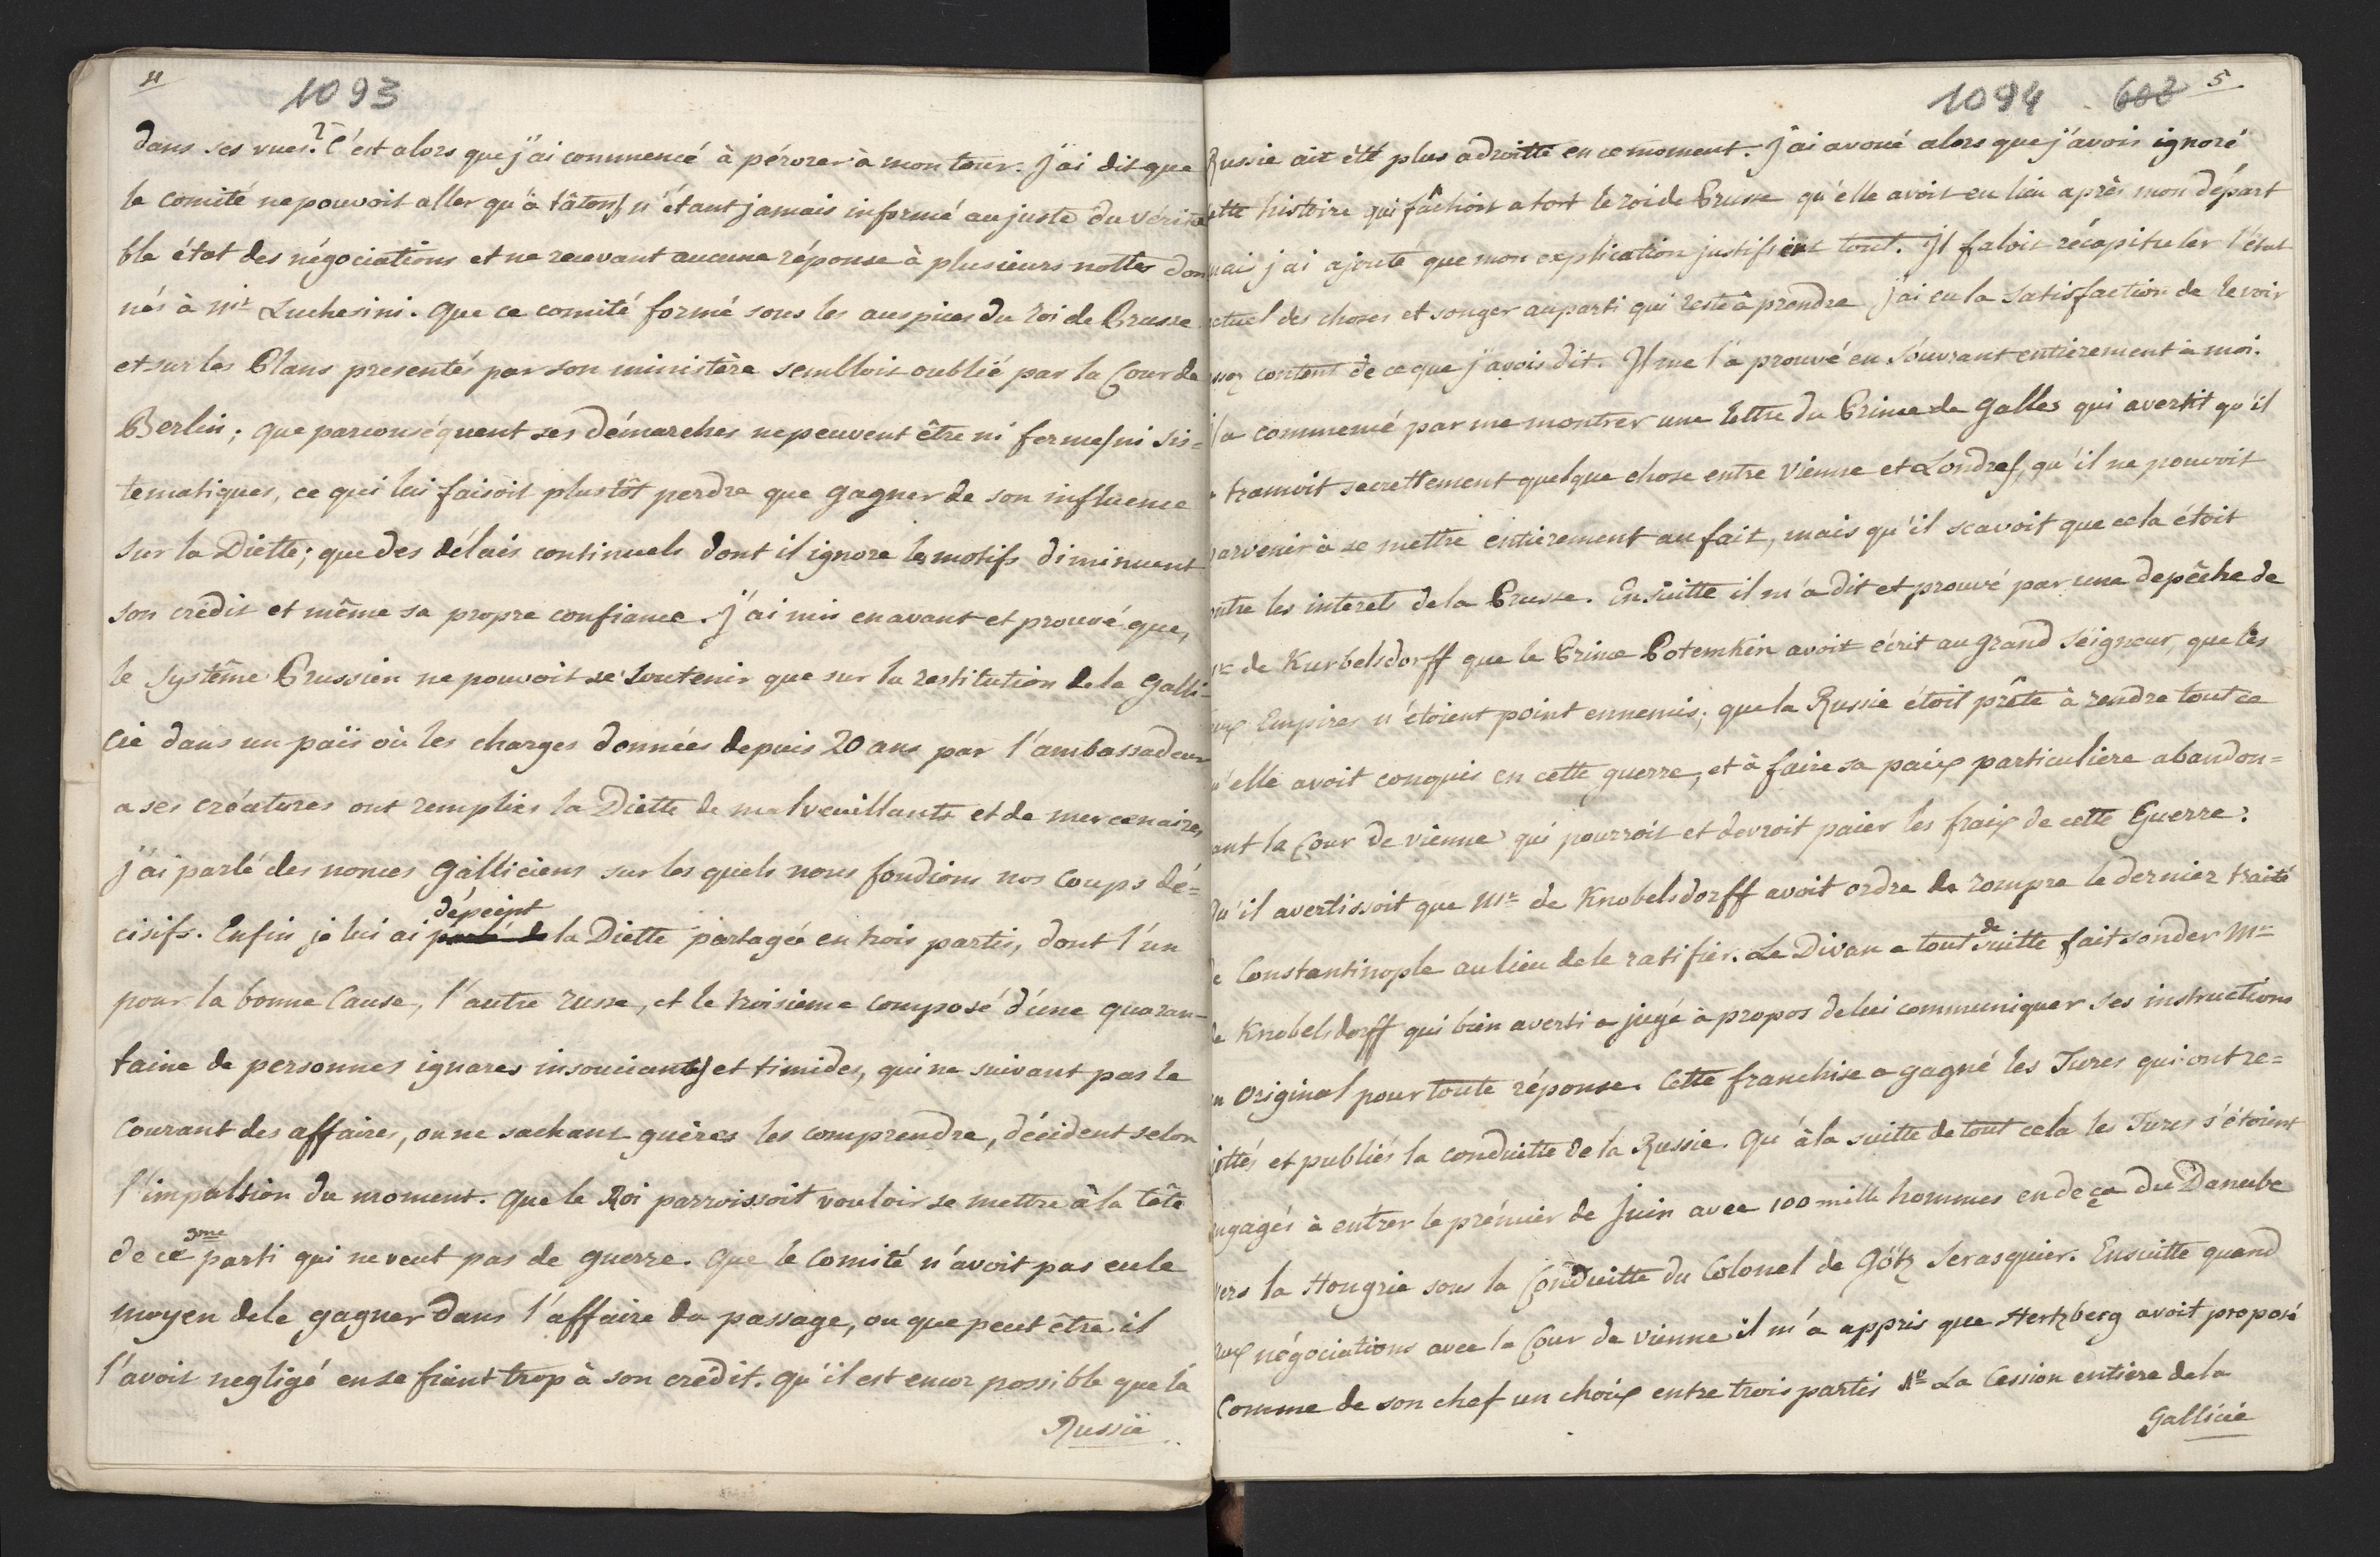 4
1093
dans ses vues? C'est alors que j'ai commencé à pérorer à mon tour. J'ai dit que
le comité ne pouvoit aller qu'à tâtons, n'étant jamais informé au juste du vérita
ble état des négociations et ne recevant aucune réponse à plusieurs nottes don
nés à Mr Luchesini. Que ce comité formé sous les auspices du roi de Prusse
et sur les Plans presentés par son ministère sembloit oublié par la Cour de
Berlin; que parconséquent ses démarches ne peuvent être ni fermes ni sis=
tematiques, ce qui lui faisoit plustôt perdre que gagner de son influence
sur la Diette; que des délais continuels dont il ignore les motifs diminuent
son crédit et même sa propre confiance. J'ai mis en avant et prouvé que,
le Systême Prussien ne pouvoit se soutenir que sur la restitution de la Galli-
cie dans un païs où les charges données depuis 20 ans par l'ambassadeur
a ses créatures ont remplies la Diette de malveuillants et de mercenaires
j'ai parlé des nonces Galliciens sur les quels nous fondions nos coups dé=
cisifs. Enfin je lui ai dépeint la Diette partagée en trois partis, dont l'un
pour la bonne Cause, l'autre russe, et le troisième composé d'une quaran-
taine de personnes ignares insouciantes et timides, qui ne suivant pas le
Courant des affaires, ou ne sachant guères les comprendre, décident selon
l'impulsion du moment. Que le Roi parroissoit vouloir se mettre à la tête
de ce 3me parti qui ne veut pas de guerre. Que le Comité n'avoit pas eu le
moyen de le gagner dans l'affaire du passage, ou que peut être il
l'avoit negligé en se fiant trop à son crédit. Qu'il est encor possible que la
Russie
1094 602 5.
Russie ait été plus adroitte en ce moment. J'ai avoué alors que j'avois ignoré
ette histoire qui fâchoit a tort le roi de Prusse qu'elle avoit eu lieu après mon départ
mais j'ai ajouté que mon explication justifioit tout. Il faloit récapituler l'état
actuel des choses et songer au parti qui reste à prendre j'ai eu la satisfaction de le voir
assez content de ce que j'avois dit. Il me l'a prouvé en s'ouvrant entierement à moi.
il a commencé par me montrer une lettre du Prince de Galles qui avertit qu'il
tramoit secrettement quelque chose entre Vienne et Londres, qu'il ne pouvoit
parvenir à se mettre entierement au fait, mais qu'il scavoit que cela étoit
ontre les interets de la Prusse. Ensuitte il m'a dit et prouvé par une depêche de
Mr de Kurbelsdorff que le Prince Potemkin avoit écrit au grand Séigneur, que les
deux Empires n'étoient point ennemis; que la Russie étoit prête à rendre tout ce
qu'elle avoit conquis en cette guerre, et à faire sa paix particuliere abandon=
ant la Cour de vienne qui pourroit et devroit paier les fraix de cette Guerre.
Qu'il avertissoit que Mr de Knobelsdorff avoit ordre de rompre le dernier traité
de Constantinople au lieu de le ratifier. Le Divan a tout de suitte fait sonder Mr
de Knobelsdorff qui bien averti a jugé à propos de lui communiquer ses instructions
en Original pour toute réponse. Cette franchise a gagné les Turcs qui ont re=
jettés et publiés la conduitte de la Russie. Qu'à la suitte de tout cela les Turcs s'étoient
engagés à entrer le prémier de Juin avec 100 mille hommes en deça du Danube
vers la Hongrie sous la Conduitte du Colonel de Götz Serasquier. Ensuitte quand
aux négociations avec la Cour de Vienne il m'a appris que Hertzberg avoit proposé
Comme de son chef un choix entre trois partis 1o La Cession entiere de la
Gallicie